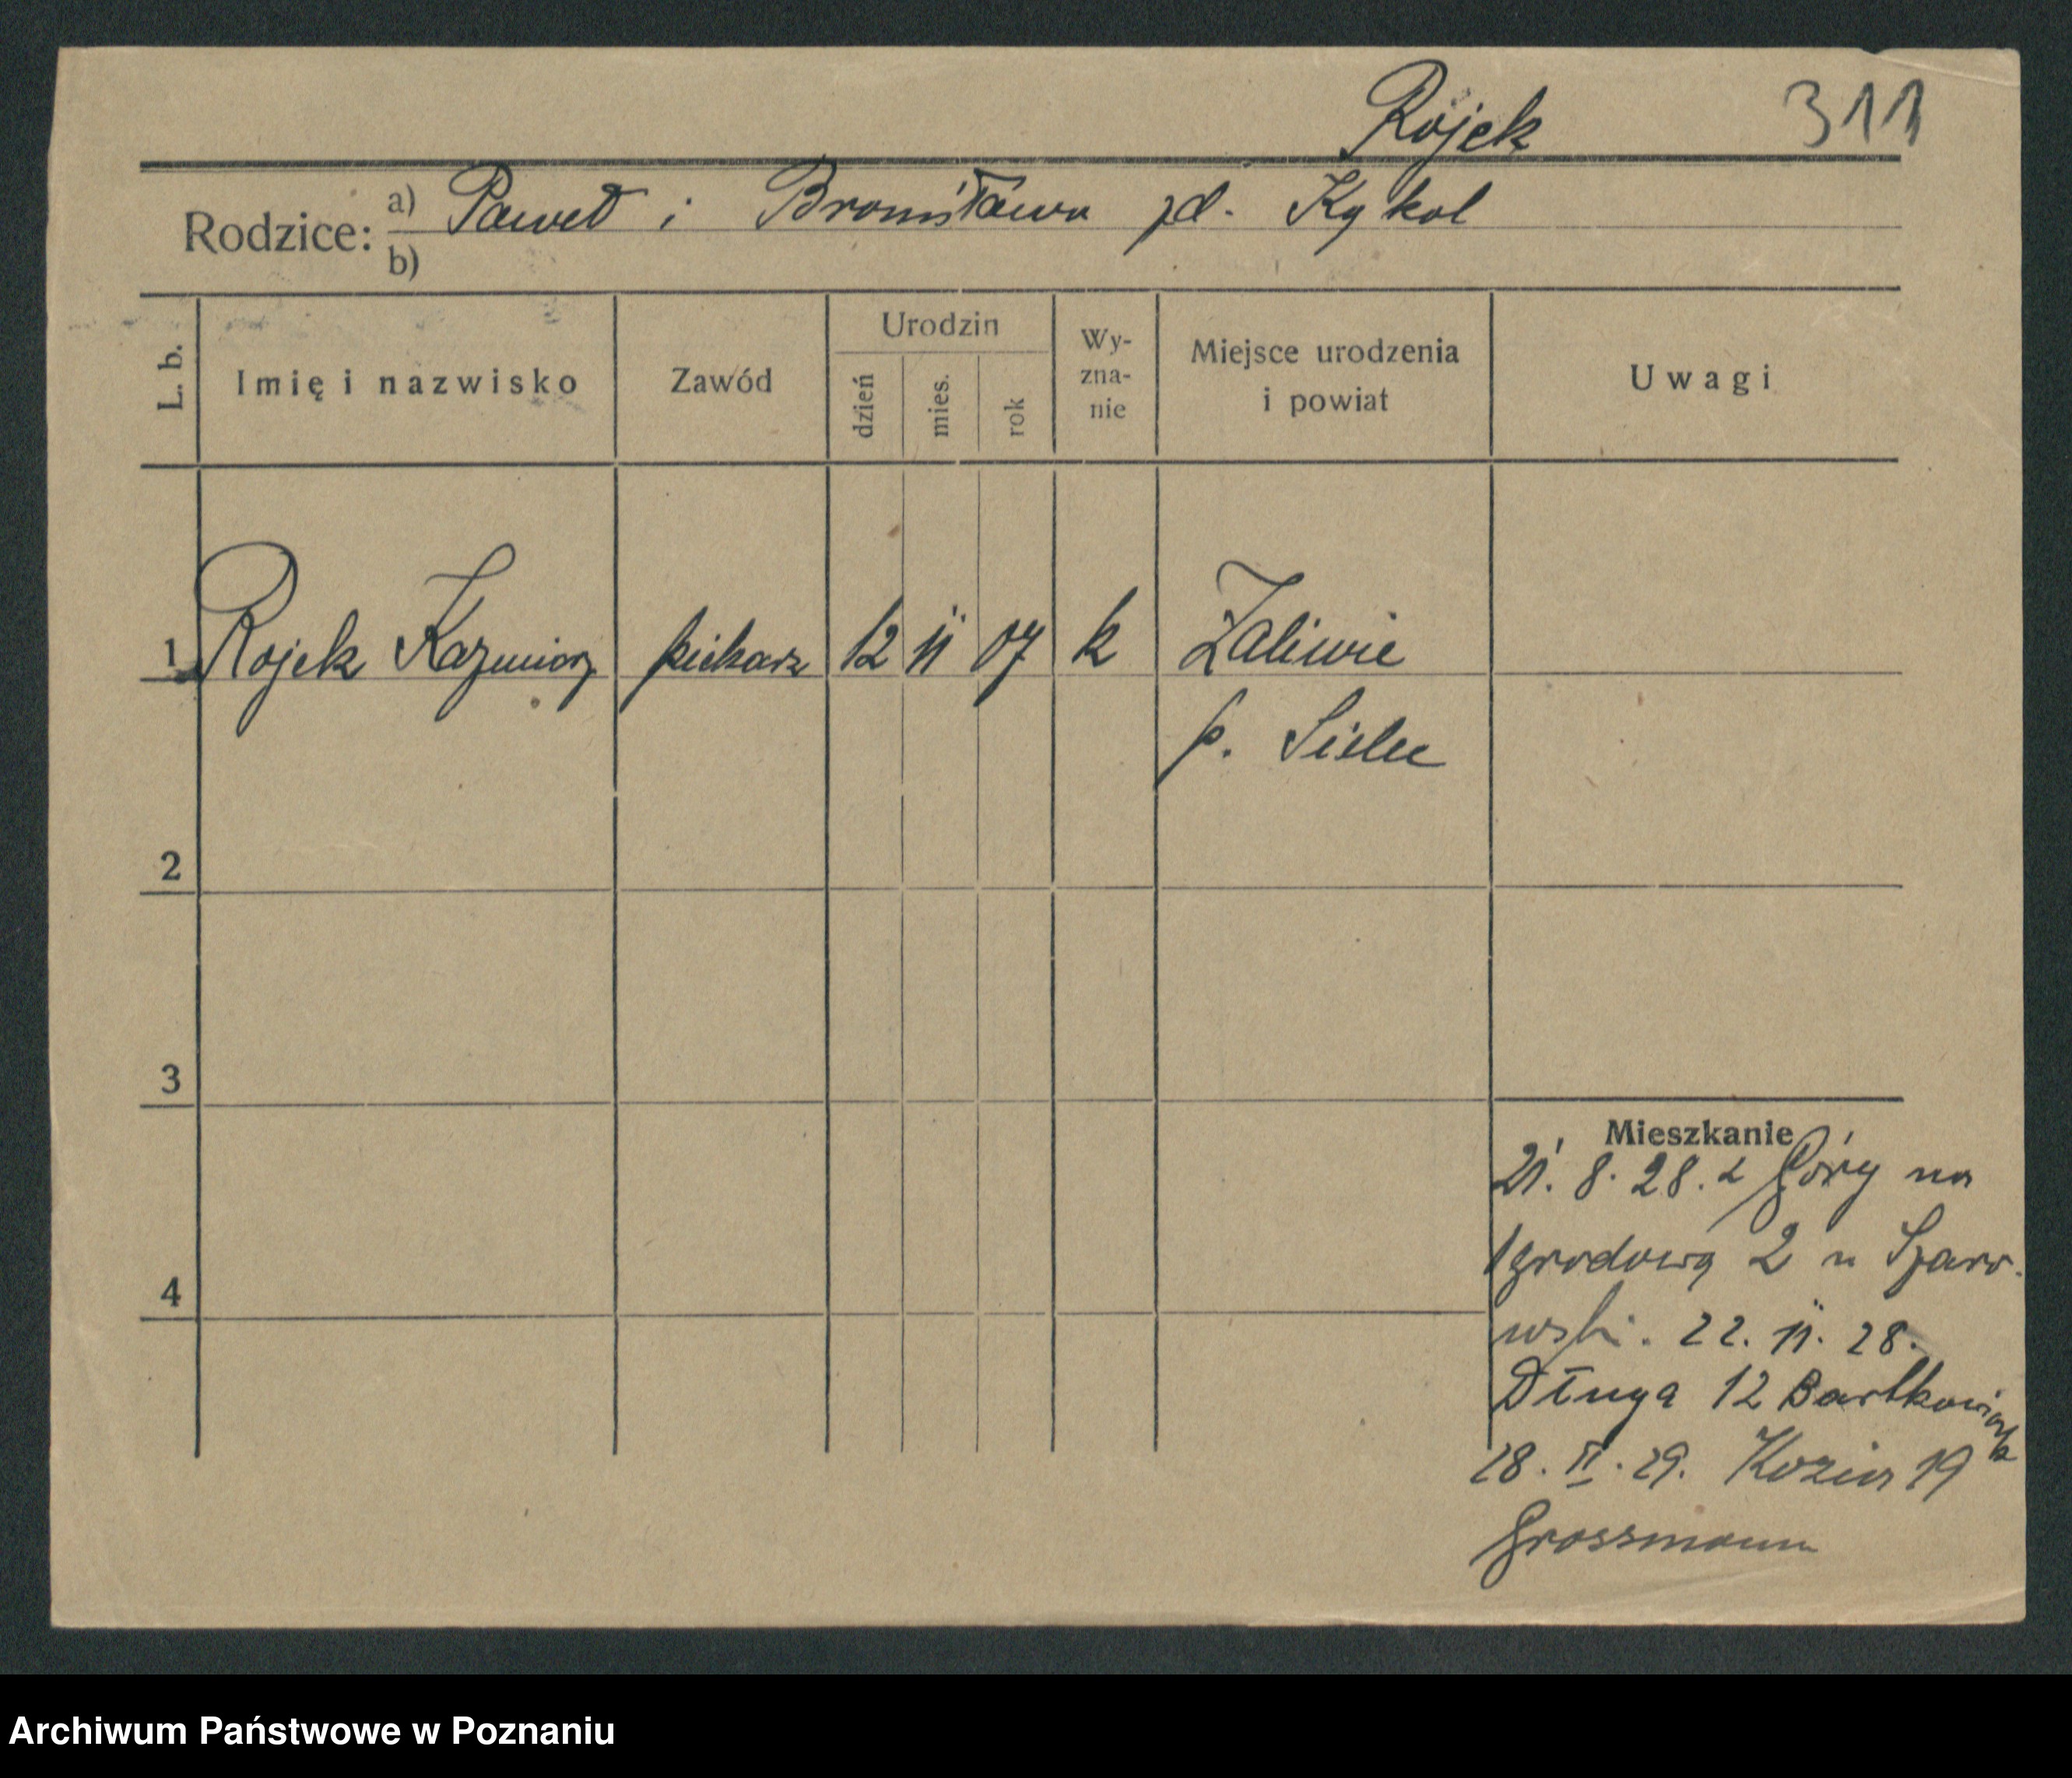 Rojek 311
Rodzice: a) Paweł i Bronisława zd. Kykol
b)
L. b. Imię i nazwisko Zawód Urodzin dzień mies. rok Wy-
zna-
nie Miejsce urodzenia
i powiat Uwagi
1 Rojek Kazmierz piekarz 12 11 07 k Zaliwie
p. Sielec
2
3
4
Mieszkanie
21. 8. 28. z Góry na
Ogrodową 2 u Szaro-
wski. 22. 11. 28.
Długa 12 Bartkowiak
28. II. 29. Kozia 19
Grossmann
Archiwum Państwowe w Poznaniu